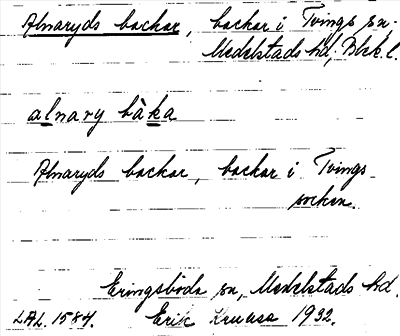 Alnaryds backar, backar i Tvings sn.
Medelstads hd, Blek. l.
alnary bàka
Alnaryds backar, backar i Tvings
socken.
Eringsboda sn, Medelstads hd.
LAL. 1584. Erik 1932.